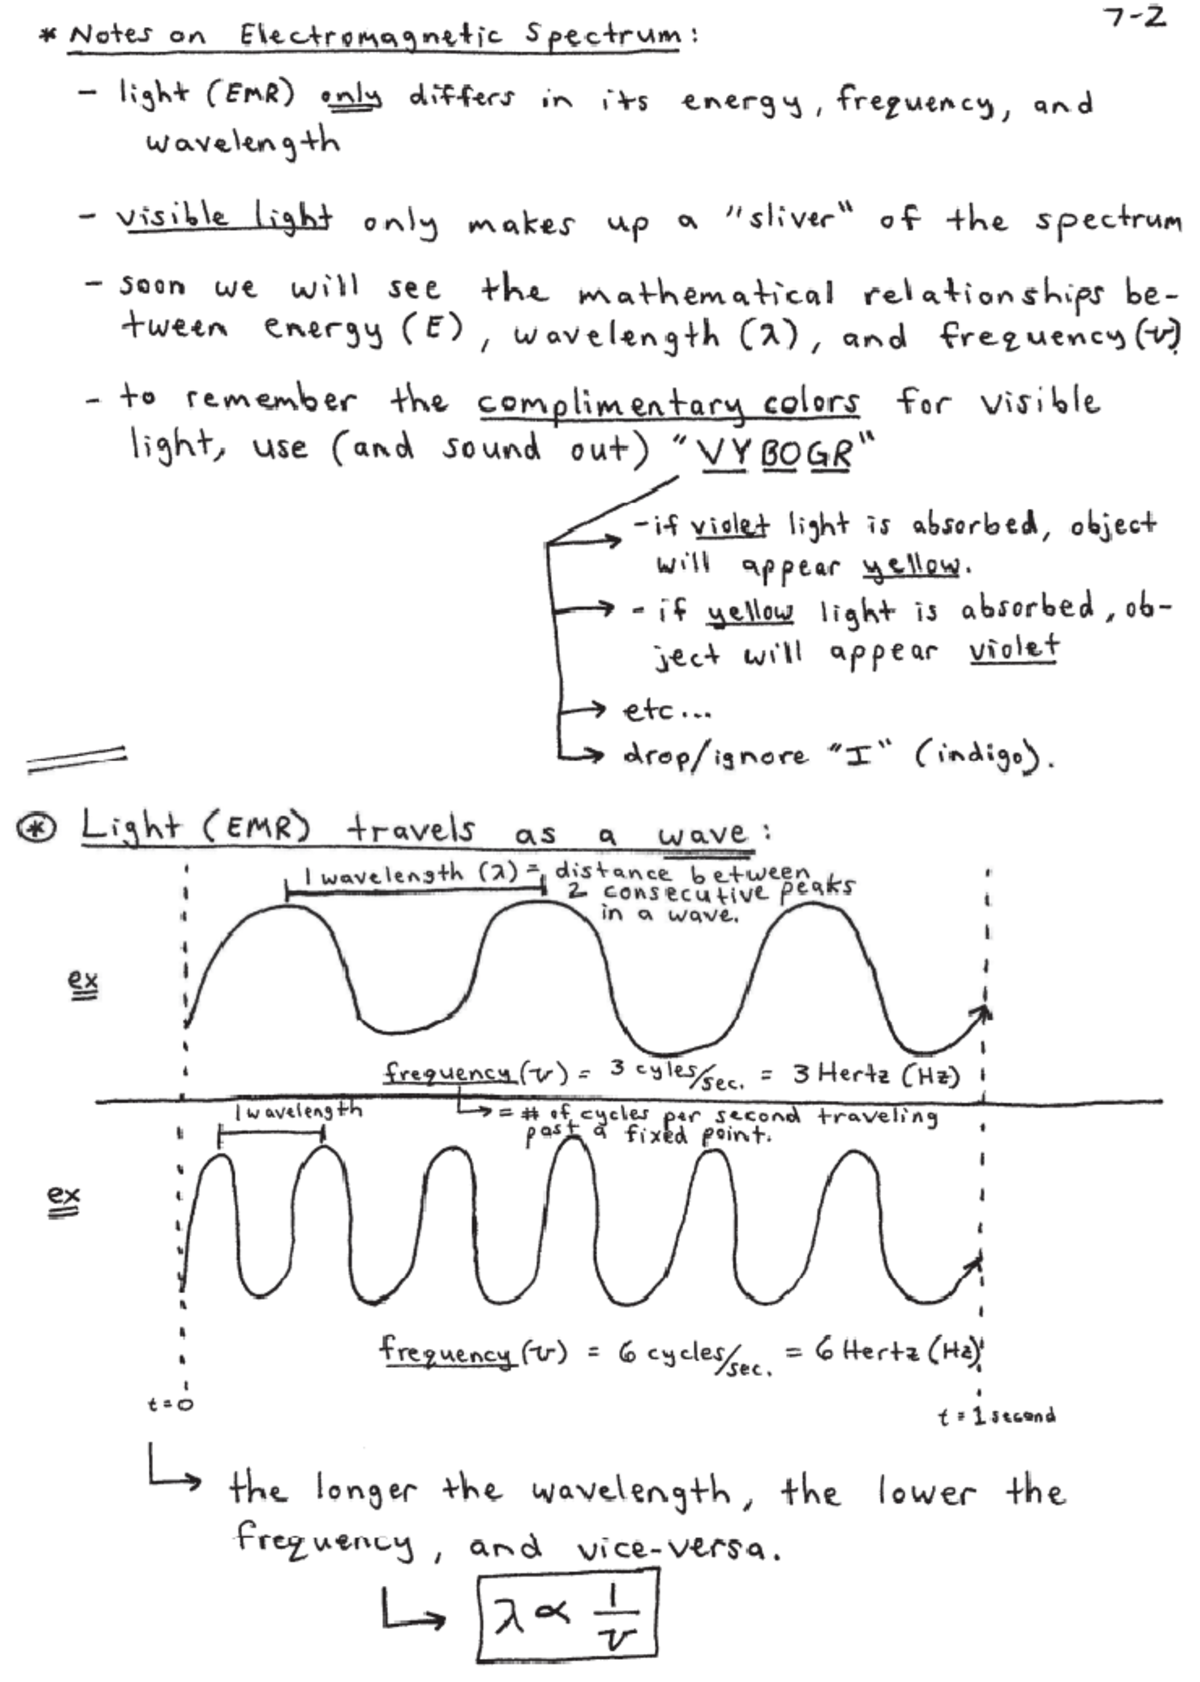 7-2
* Notes on Electromagnetic Spectrum:
- light (EMR) only differs in its energy, frequency, and
wavelength
- visible light only makes up a "sliver" of the spectrum
- soon we will see the mathematical relationships be-
tween energy (E), wavelength (λ), and frequency (ν).
- to remember the complimentary colors for visible
light, use (and sound out) "VYBOGR"
- if violet light is absorbed, object
will appear yellow.
- if yellow light is absorbed, ob-
ject will appear violet
etc...
drop/ignore "I" (indigo).
* Light (EMR) travels as a wave:
1 wavelength (λ) = distance between
2 consecutive peaks
in a wave.
ex
frequency (ν) = 3 cyles/sec. = 3 Hertz (Hz)
1 wavelength
= # of cycles per second traveling
past a fixed point.
ex
frequency (ν) = 6 cycles/sec. = 6 Hertz (Hz)
t = 0
t = 1 second
the longer the wavelength, the lower the
frequency, and vice-versa.
λ ∝ 1/ν